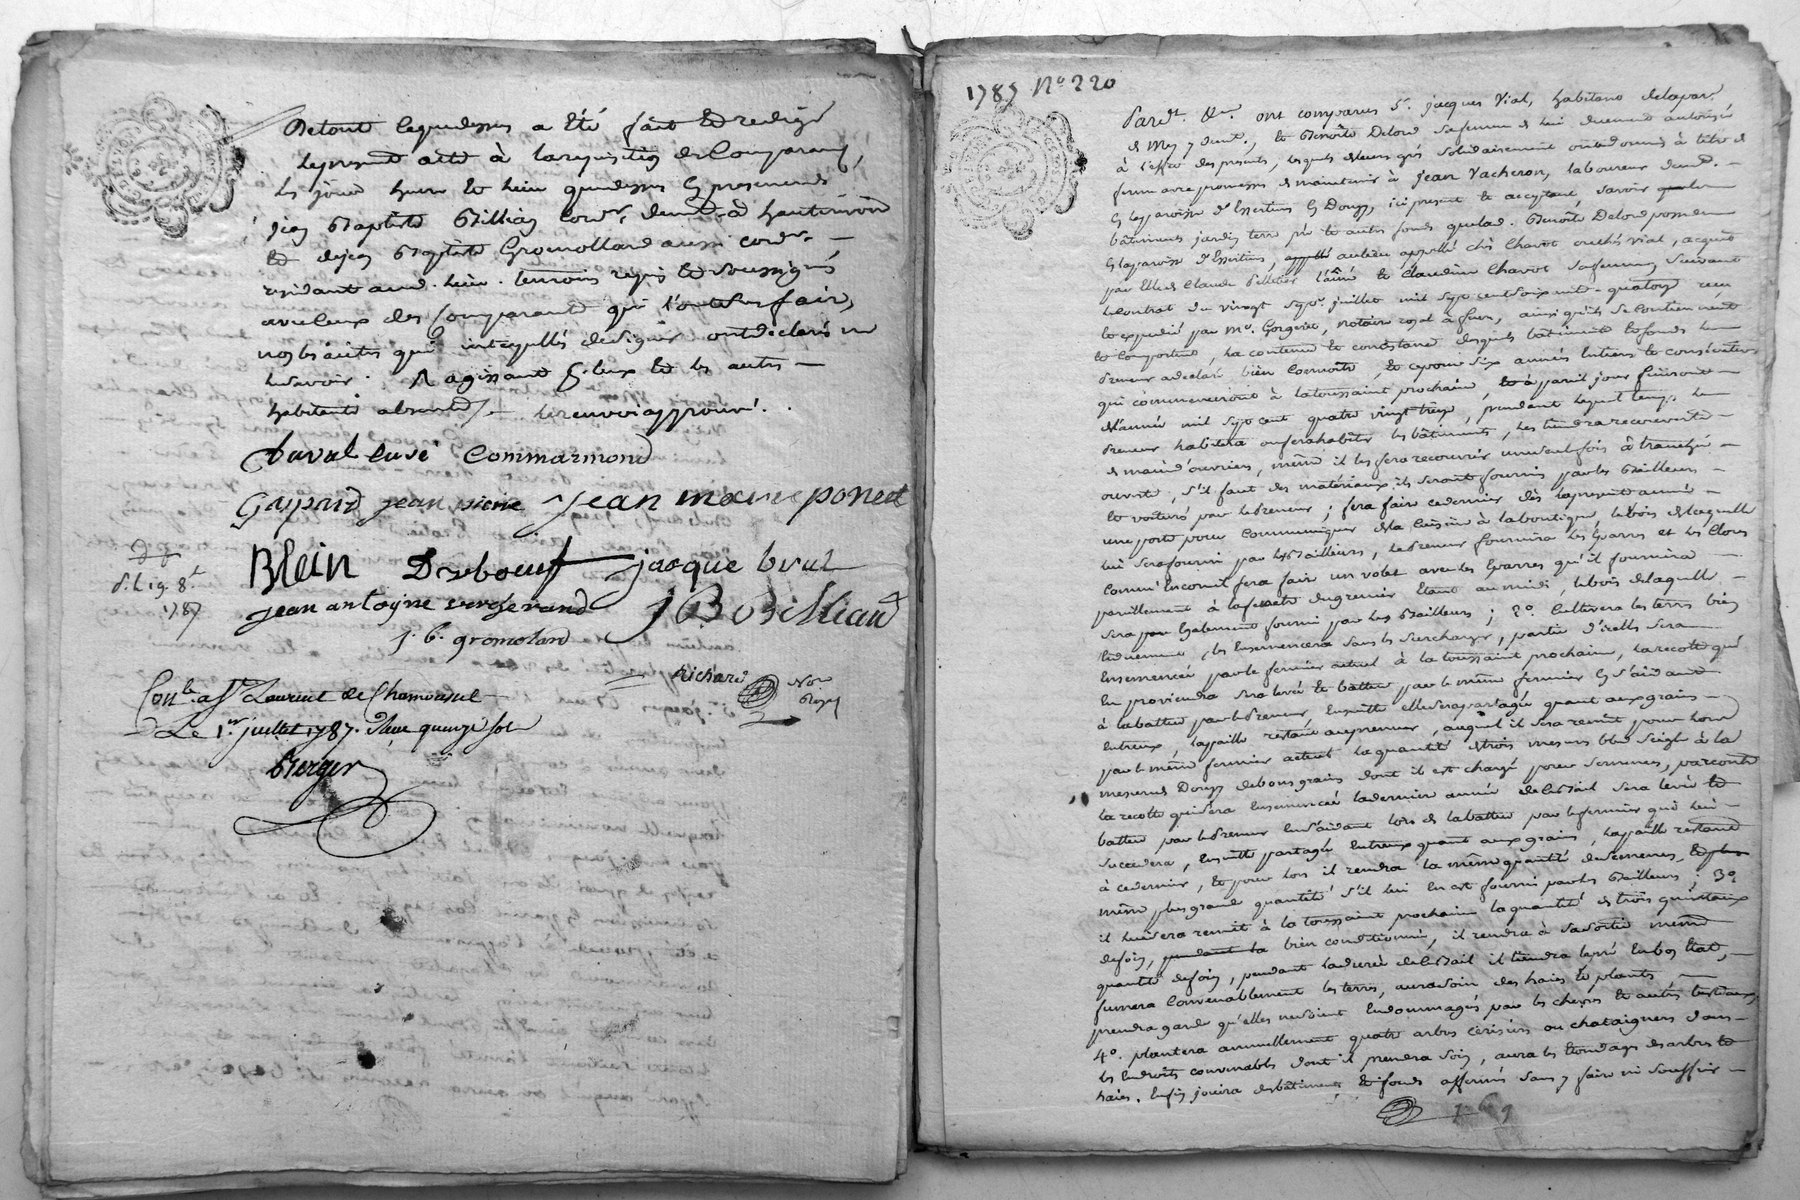 De tout ce que dessus a été fait et redigé
le present acte à la requisition des Comparants,
les jour heure et lieu que dessus en presence de
jean Baptiste Billiau cord.r dem.t à hauterivoire
et de jean Baptiste Gromollard aussi cord.r
residant aud. lieu. temoins requis et soussignés
avec ceux des comparants qui l'ont sçu faire,
non les autres qui interpellés de signer ont déclaré ne
le savoir. R agissant p. eux et les autres
habitants absents /. le renvoi approuvé.
Duval curé Commarmond
Gaspard jean pierre jean marie poncet
Blein Duboeuf jacque brut
jean antoyne vergerand J B Billiaud
j. b. gromolard
d. L. 19. 8.t
1787
Richard Not.
Royal
Con.lé a St Laurent de Chamousset
Le 1.er juillet 1787. Reçu quinze sols
Berger
1787 N.o 220
Pard.t &.a ont comparus S.r jacques Vial, habitant de la par.
de Mey y dem.t, et Benoîte Delord sa femme de lui duement autorisée
à l'effet des presentes, lesquels de leurs grés solidairement ont donné à titre de
ferme avec promesse de maintenir à jean Vacheron, laboureur dem.t
en la paroisse d'Essertines en Donzy, ici present et acceptant, savoir
bâtiments jardin terre pré et autres fonds que lad. Benoîte Delord possede
en la paroisse d'Essertines, au lieu appellé chés Chavot ou chés Vial, acquis
par elle de Claude Pelletier l'aîné et Claudine Chavot sa femme, suivant
le contrat du vingt sept juillet mil sept cent soixante-quatorze reçu
et expedié par M.e Gorgeret, notaire royal à feurs, ainsi qu'ils se contiennent
et comportent, la contenue et consistance desquels bâtiments et fonds le
Preneur a declaré bien connoître, et ce pour six années entieres et consecutives
qui commenceront à la toussaint prochaine, et à pareil jour finiront
de l'année mil sept cent quatre vingt treize, pendant lequel temps le
Preneur habitera ou fera habiter les bâtiments, les tiendra recouverts
de main d'ouvriers, même il les fera recouvrir une seule fois à tranché
ouverte, s'il faut des matériaux ils seront fournis par les Bailleurs
et voiturés par le Preneur; fera faire ce dernier dès la presente année
une porte pour communiquer de la cuisine à la boutique, le bois de laquelle
lui sera fourni par les Bailleurs, le Preneur fournira les Gharres et les Clous
comm' encor il fera faire un volet avec les Gharres qu'il fournira
pareillement à la fenetre du grenier étant au midi, le bois de laquelle
sera par également fourni par les Bailleurs; 2.o Cultivera les terres bien
et duement, les ensemencera sans les surcharger, partie d'icelles sera
ensemencée par le fermier actuel à la toussaint prochaine, la recolte qui
en proviendra sera levée et battue par le même fermier en s'aidant
à la battre par le Preneur, ensuitte elle sera partagée quant aux grains
entr'eux, la paille restant au preneur, auquel il sera remit pour lors
par le même fermier actuel la quantité de trois mesures bled seigle à la
mesure de Donzy de bons grains dont il est chargé pour semences, par contre
la recolte qui sera ensemencée la derniere année de ce Bail sera levée et
battue par le Preneur en s'aidant lors de la battre par le fermier qui lui
succedera, ensuitte partagée entr'eux quant aux grains, la paille restant
à ce dernier, et pour lors il rendra la même quantité de semences, et plus
même plus grande quantité s'il lui en est fourni par les Bailleurs; 3.o
il lui sera remit à la toussaint prochaine la quantité de trois quintaux
de foin, pendant la bien conditionné, il rendra à sa sortie même
quantité de foin, pendant la durée de ce Bail il tiendra le pré en bon état,
fumera convenablement les terres, aura soin des haies et plants
prendra garde qu'elles ne soient endommagées par les chevres et autres bestiaux,
4.o plantera annuellement quatre arbres cerisiers ou chataigners dans
les endroits convenables dont il prendra soin, aura les tondages des arbres et
haies. Enfin jouira des bâtiments et fonds affermés sans y faire ni souffrir